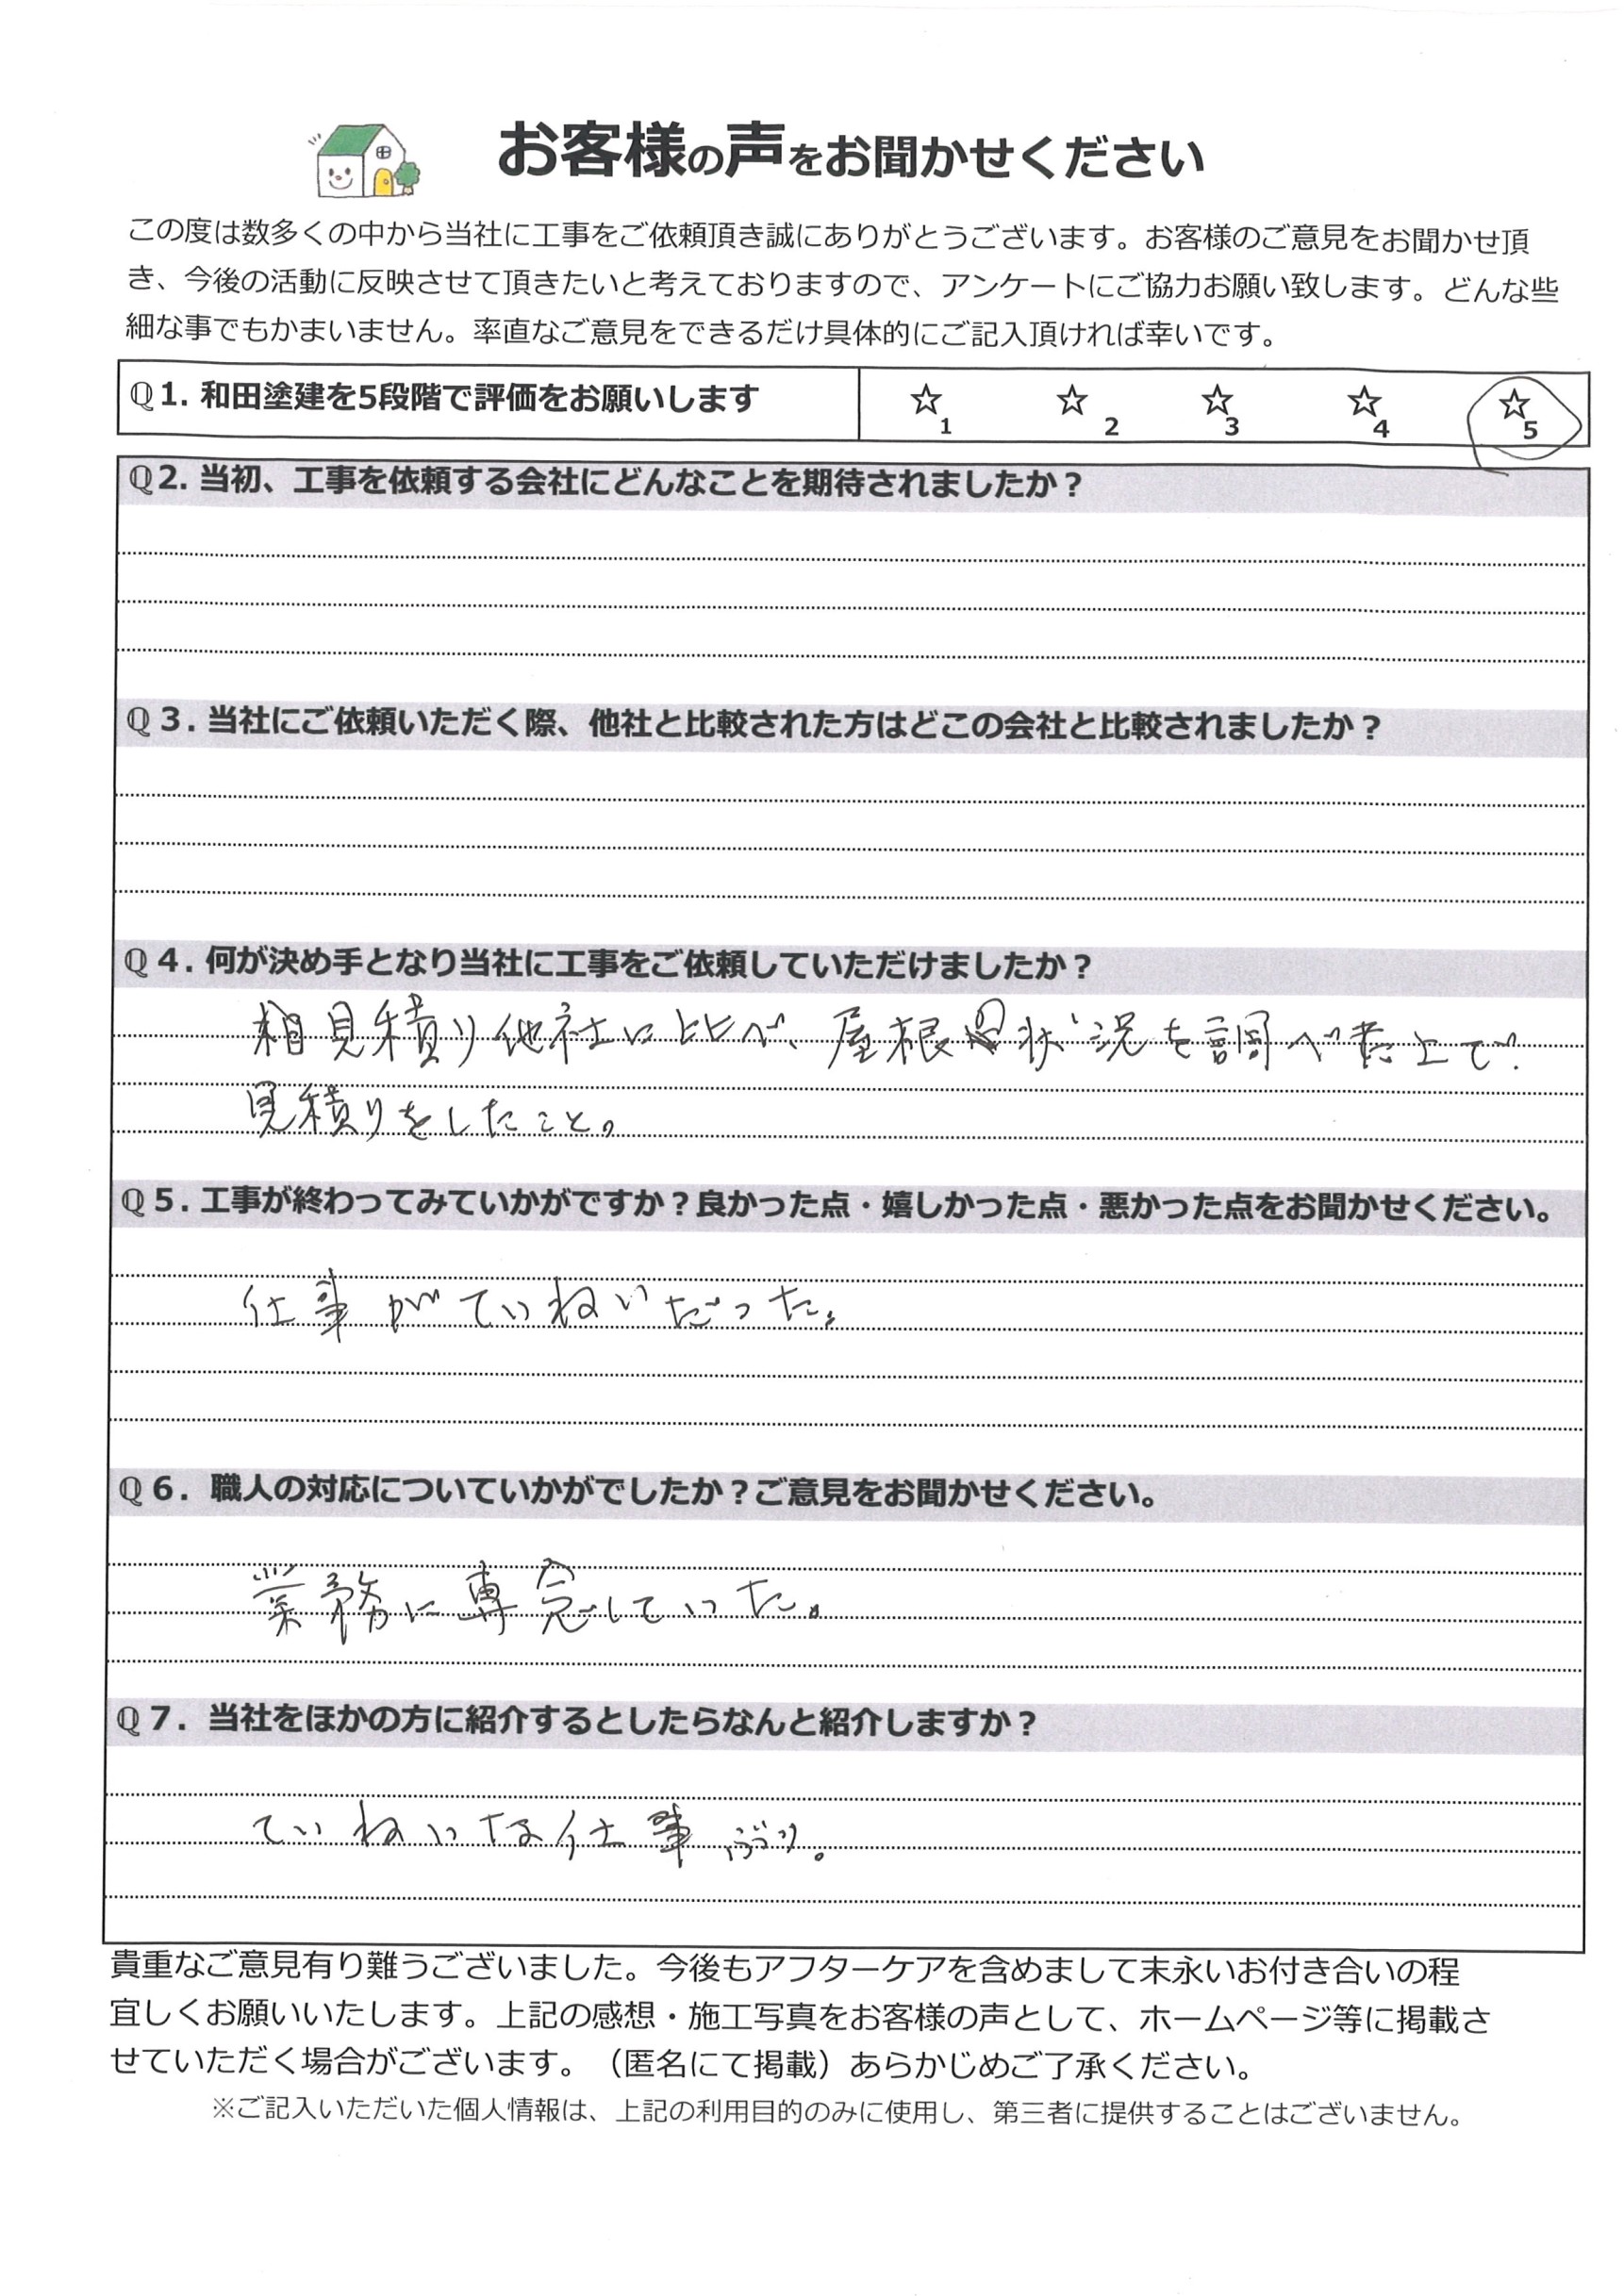 お客様の声をお聞かせください
この度は数多くの中から当社に工事をご依頼頂き誠にありがとうございます。お客様のご意見をお聞かせ頂
き、今後の活動に反映させて頂きたいと考えておりますので、アンケートにご協力お願い致します。どんな些
細な事でもかまいません。率直なご意見をできるだけ具体的にご記入頂ければ幸いです。
Q1. 和田塗建を5段階で評価をお願いします ☆1 ☆2 ☆3 ☆4 ☆5
Q2. 当初、工事を依頼する会社にどんなことを期待されましたか？
Q３. 当社にご依頼いただく際、他社と比較された方はどこの会社と比較されましたか？
Q４. 何が決め手となり当社に工事をご依頼していただけましたか？
相見積り他社に比べ、屋根の状況を調べた上で
見積りをしたこと。
Q５. 工事が終わってみていかがですか？良かった点・嬉しかった点・悪かった点をお聞かせください。
仕事がていねいだった。
Q６. 職人の対応についていかがでしたか？ご意見をお聞かせください。
業務に専念していた。
Q７. 当社をほかの方に紹介するとしたらなんと紹介しますか？
ていねいな仕事ぶり。
貴重なご意見有り難うございました。今後もアフターケアを含めまして末永いお付き合いの程
宜しくお願いいたします。上記の感想・施工写真をお客様の声として、ホームページ等に掲載さ
せていただく場合がございます。（匿名にて掲載）あらかじめご了承ください。
※ご記入いただいた個人情報は、上記の利用目的のみに使用し、第三者に提供することはございません。